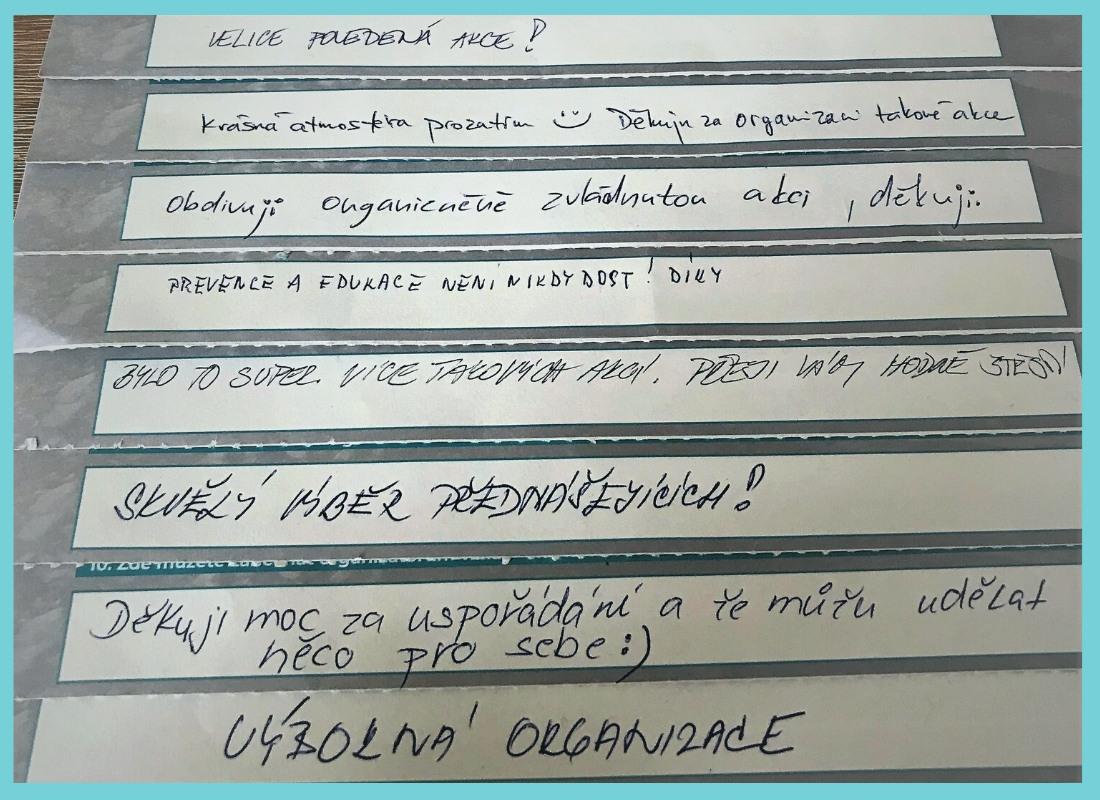 VELICE POVEDENÁ AKCE!
Krásná atmosféra prozatím Děkuju za organizaci takové akce
Obdivuji organizačně zvládnutou akci, děkuji.
PREVENCE A EDUKACE NENÍ NIKDY DOST! DÍKY
BYLO TO SUPER. VÍCE TAKOVÝCH AKCÍ. PŘEJI VÁM HODNĚ ŠTĚSTÍ
SKVĚLÝ VÝBĚR PŘEDNÁŠEJÍCÍCH!
10. Zde můžete
Děkuji moc za uspořádání a že můžu udělat
něco pro sebe :)
VÝBORNÁ ORGANIZACE